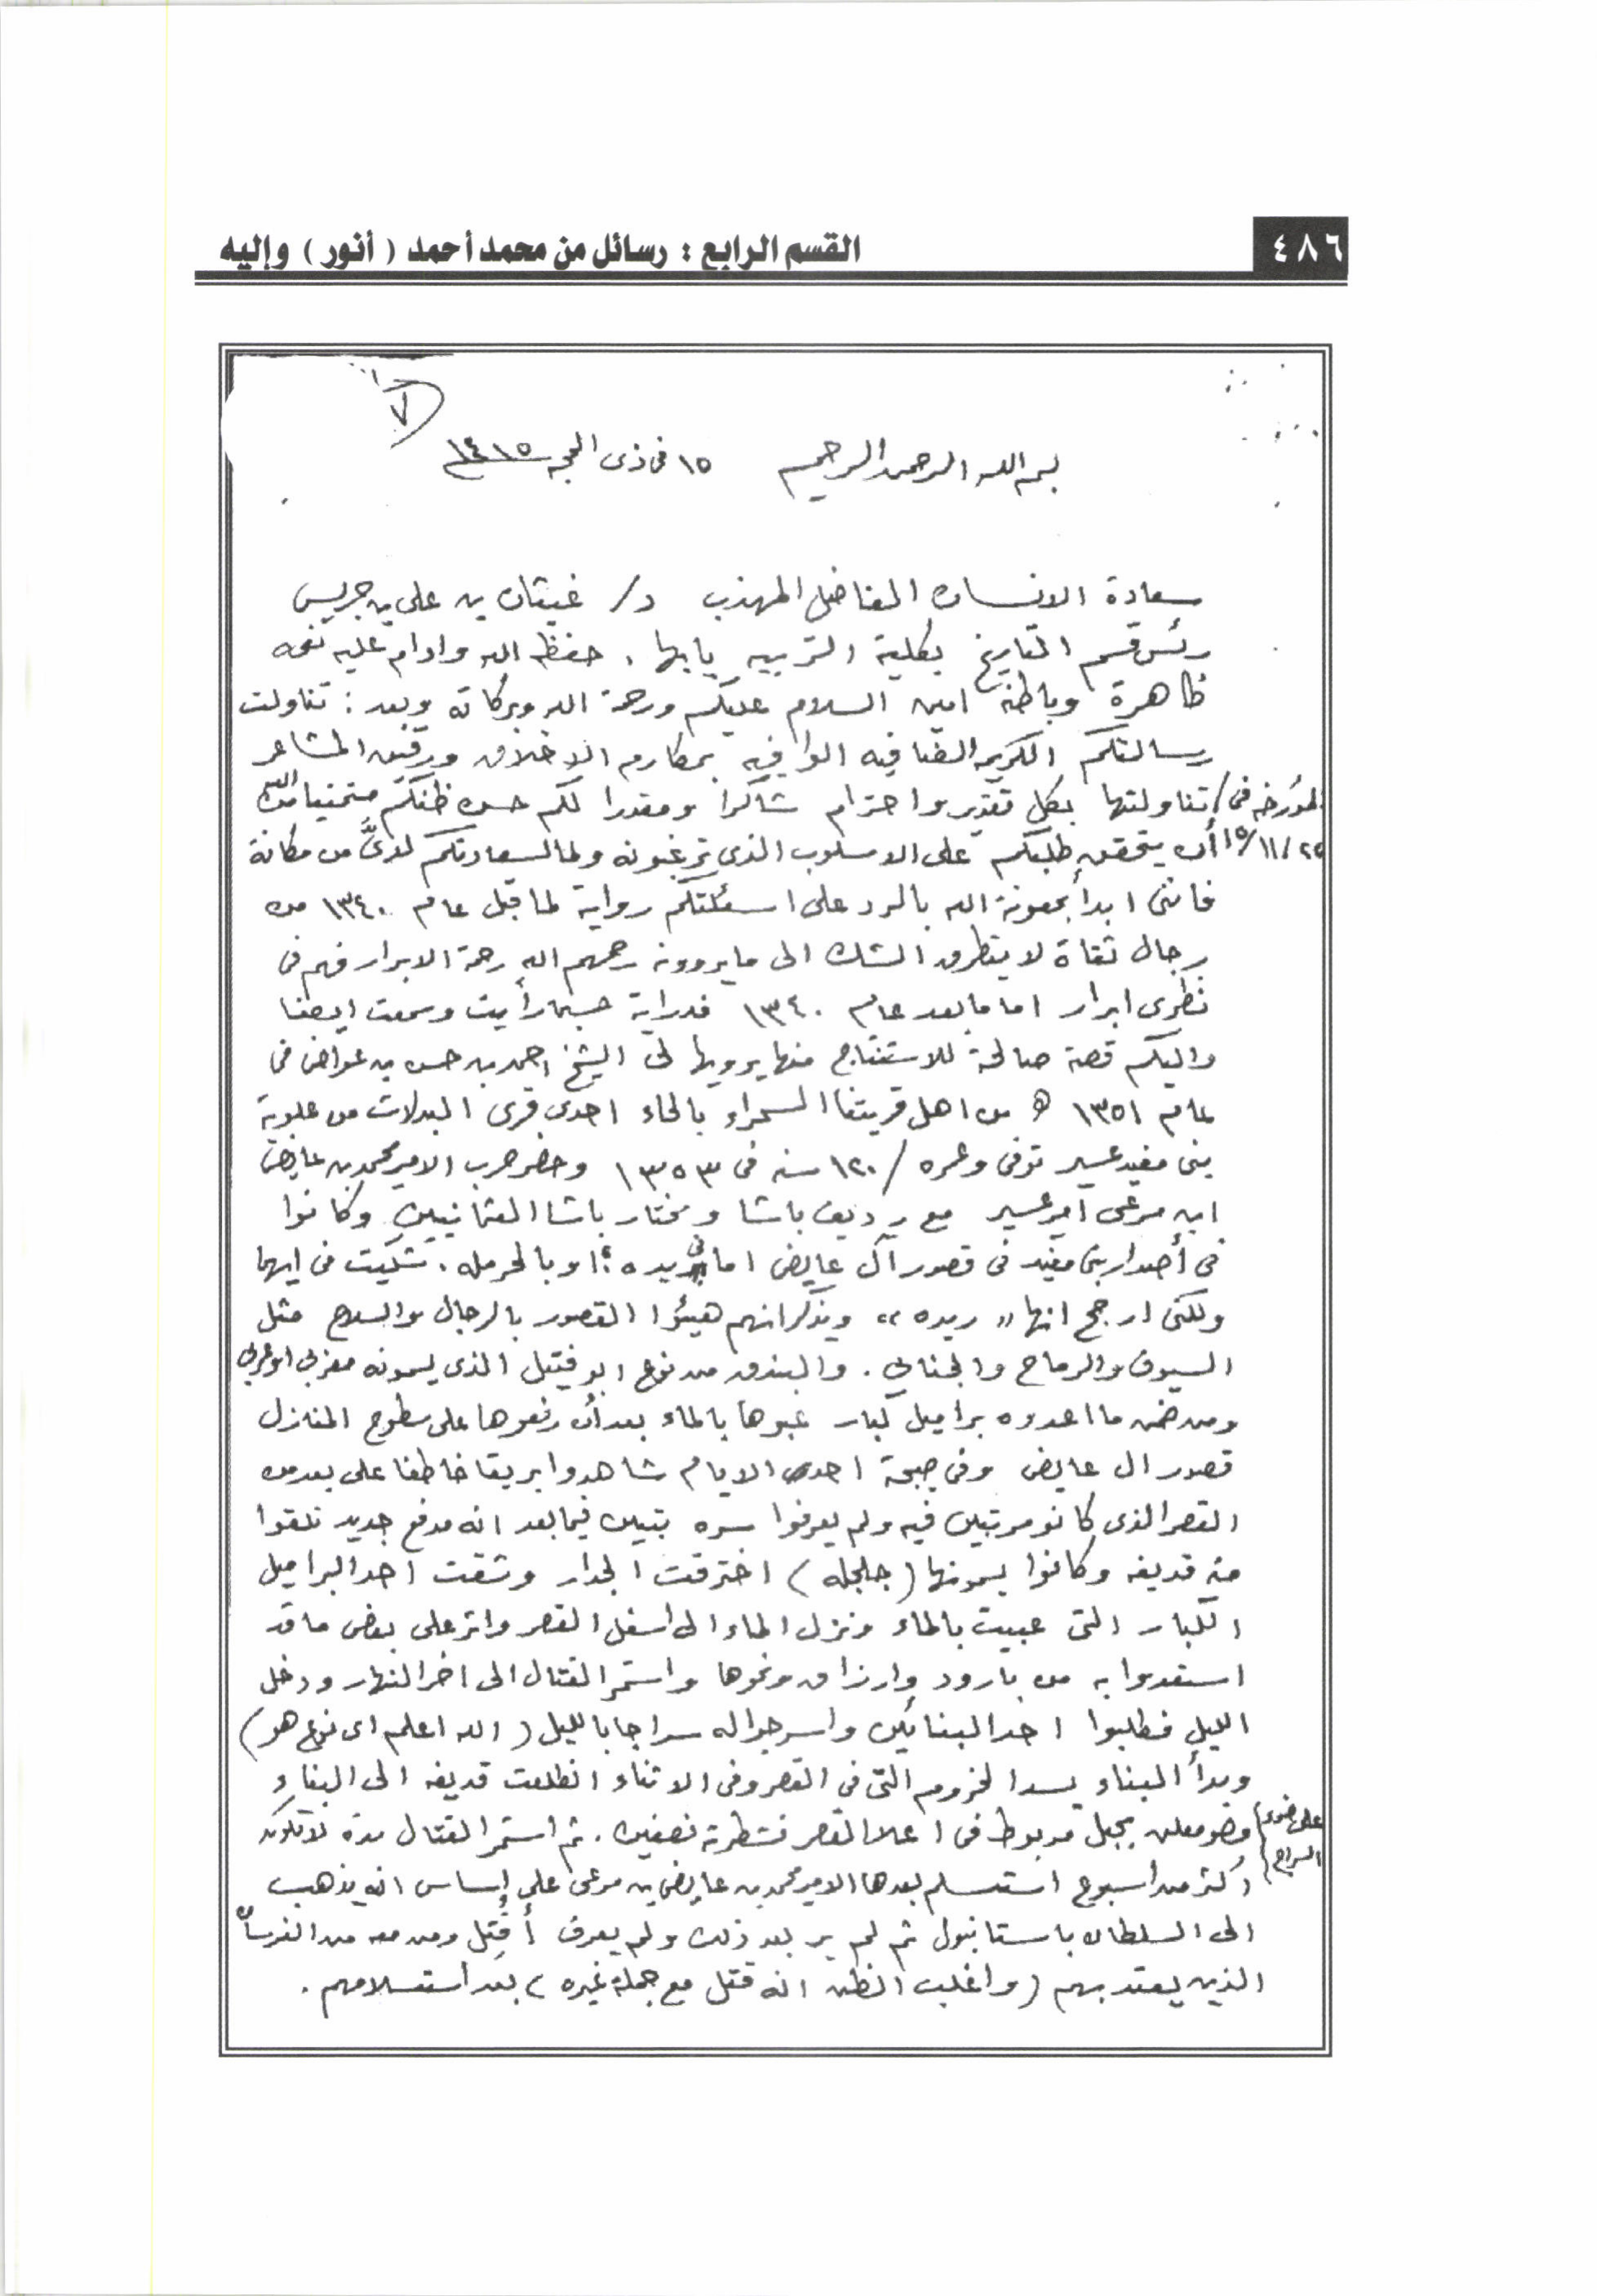 القسم الرابع : رسائل من محمد أحمد ( أنور ) وإليه
٤٨٦
٧
بسم الله الرحمن الرحيم ١٥ فى ذى الحجه ١٤١٥
سعادة الانسان الفاضل المهذب د/ غيثان بن على بن جريس
رئس قسم التاريخ بكلية التربيه بابها . حفظه الله وادام عليه نعمه
ظاهرة وباطنة امين السلام عليكم ورحمة الله وبركاته وبعد : تناولت
رسالتكم الكريمه الضافيه الوافيه بمكارم الاخلاق ورقيق المشاعر
المؤرخه فى / تناولتها بكل تقدير واحترام شاكرا ومقدرا لكم حسن ظنكم متمنيا من الله
٢٥/١١/١٥ أن يتحقق طلبكم على الاسلوب الذى ترغبونه ولما لسعادتكم لدىَّ من مكانة
فاننى ابدأ بمعونة الله بالرد على اسئلتكم رواية لما قبل عام ١٣٤٠ من
رجال ثقاة لا يتطرق الشك الى ما يروونه رحمهم الله رحمة الابرار فهم فى
نظرى ابرار اما ما بعد عام ١٣٤٠ فدراية حسبما رأيت وسمعت ايضا
واليكم قصة صالحة للاستنتاج منها يرويها لى الشيخ احمد بن حسن بن عواض فى
عام ١٣٥١ ه من اهل قريتنا السحراء بالحاء احدى قرى البدلات من علوية
بنى مغيد عسير توفى وعمره / ١٢٠ سنه فى ١٣٥٣ وحضر حرب الامير محمد بن عايض
ابن مرعى امير عسير مع رديف باشا ومختار باشا العثمانيين وكانوا
فى أصدار بنى مغيد فى قصور آل عايض اما فى ريده ؛ او بالحرمله . شكيت فى ايهما
ولكنى ارجح انها " ريده " ويذكر انهم هيئوا القصور بالرجال والسلاح مثل
السيوف والرماح والجنابي . والبندق من نوع ابو فتيل الذى يسمونه مغربي او عربي
ومن ضمن ما اعدوه براميل كبار عبوها بالماء بعد أن رفعوها على سطوح المنازل
قصور ال عايض وفى صبحة احدى الايام شاهدوا بريقا خاطفا على بعد من
القصر الذى كانو مرتبين فيه ولم يعرفوا سره تبين فيما بعد انه مدفع جديد تلقوا
منه قذيفه وكانوا يسمونها ( جلجله ) اخترقت الجدار وشقت احد البراميل
الكبار التى عبيت بالماء ونزل الماء الى اسفل القصر واثر على بعض ما قد
استعدوا به من بارود وارزاق ونحوها واستمر القتال الى اخر النهار ودخل
الليل فطلبوا احد البنائين واسرجوا له سراجا بالليل ( الله اعلم اى نوع هو )
وبدأ البناء يسد الخروم التى فى القصر وفى الاثناء انطلقت قذيفه الى البناء
على ضوء السراج وهو معلق بحبل مربوط فى اعلا القصر فشطرته نصفين . ثم استمر القتال مدة لا تكون
اكثر من اسبوع استسلم بعدها الامير محمد بن عايض بن مرعى على إساس انه يذهب
الى السلطان باستانبول ثم لم ير بعد ذلك ولم يعرف أقُتل ومن معه من الفرسان
الذين يعتد بهم ( واغلب الظن انه قتل مع جملة غيره ) بعد استسلامهم .